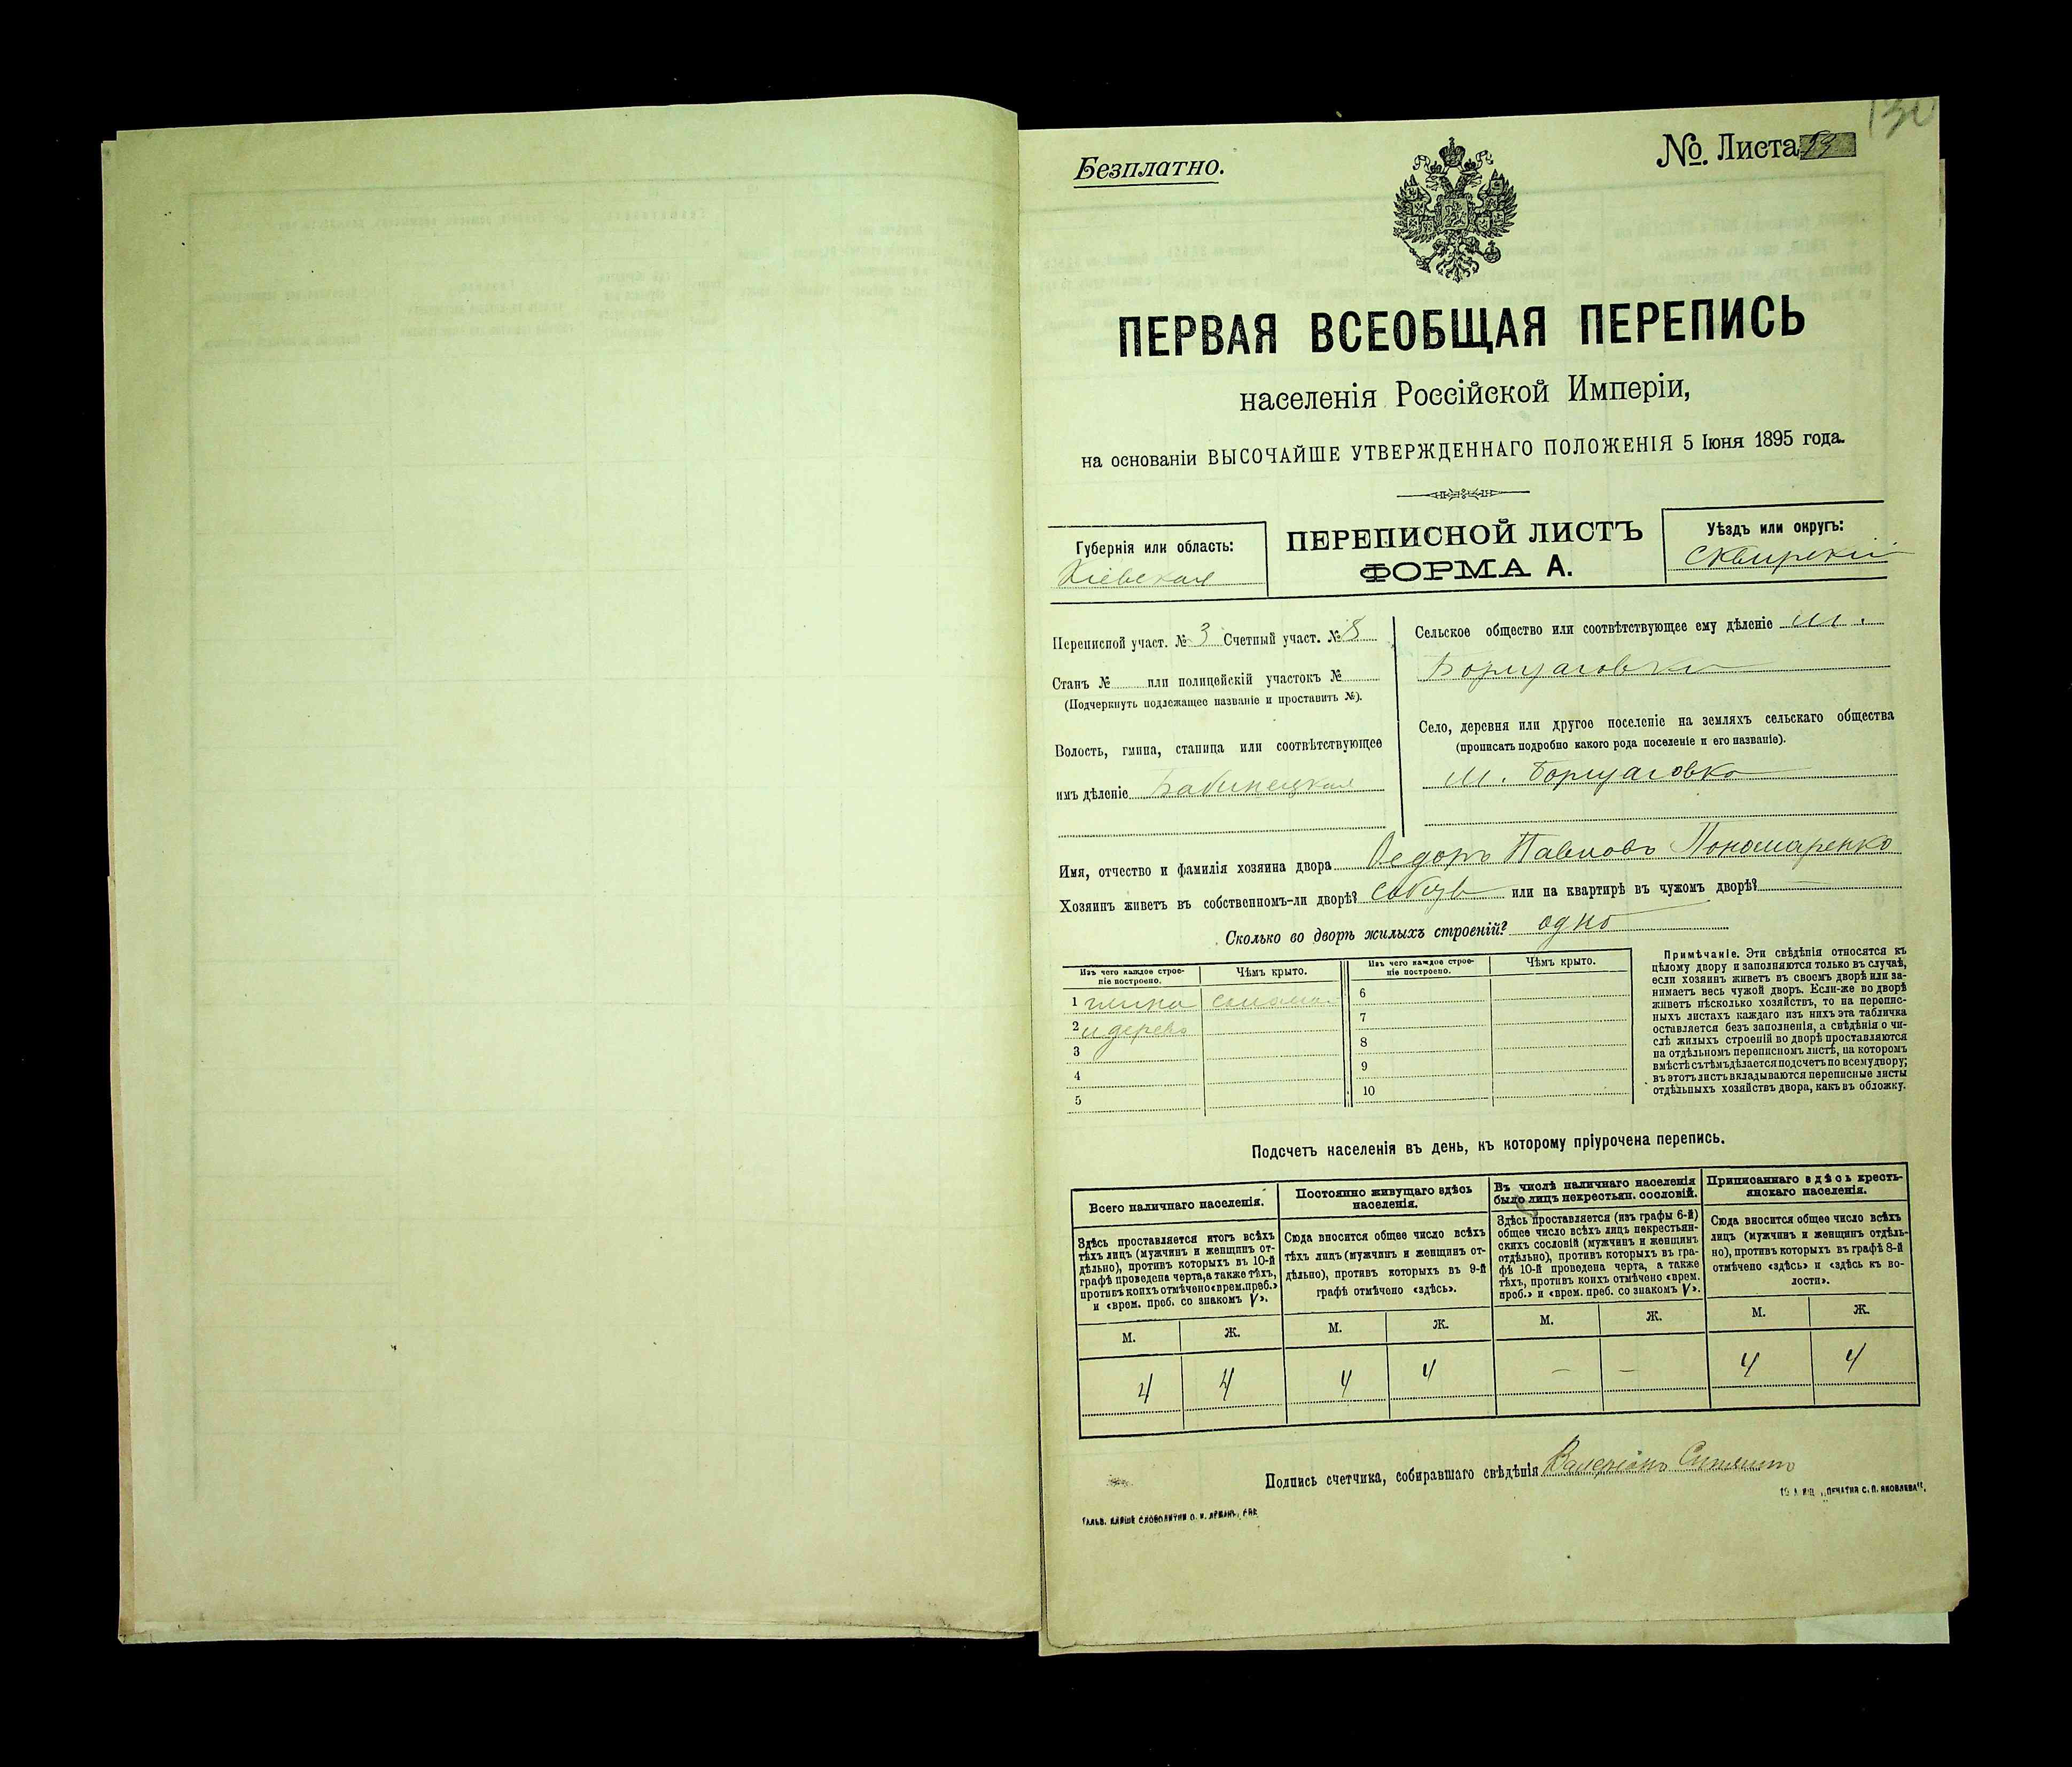 130
Безплатно.
№. Листа 53
ПЕРВАЯ ВСЕОБЩАЯ ПЕРЕПИСЬ
населенія Россійской Имперіи,
на основаніи ВЫСОЧАЙШЕ УТВЕРЖДЕННАГО ПОЛОЖЕНІЯ 5 Іюня 1895 года.
Губернія или область:
Кіевская
ПЕРЕПИСНОЙ ЛИСТЪ
ФОРМА А.
Уѣздъ или округъ:
Сквирскій
Переписной участ. № 3 Счетный участ. № 8
Станъ № или полицейскій участокъ №
(Подчеркнуть подлежащее названіе и проставить №).
Волость, гмина, станица или соотвѣтствующее
имъ дѣленіе Бабинецкая
Сельское общество или соотвѣтствующее ему дѣленіе м.
Борщаговка
Село, деревня или другое поселеніе на земляхъ сельскаго общества
(прописать подробно какого рода поселеніе и его названіе).
м. Борщаговка
Имя, отчество и фамилія хозяина двора Ѳедоръ Павловъ Пономаренко
Хозяинъ живетъ въ собственномъ-ли дворѣ? или на квартирѣ въ чужомъ дворѣ? —
Сколько во дворѣ жилыхъ строеній? одно
Изъ чего каждое строе-
ніе построено.
Чѣмъ крыто.
1 глина солома
2 и дерево
3
4
5
Изъ чего каждое строе-
ніе построено.
Чѣмъ крыто.
6
7
8
9
10
Примѣчаніе. Эти свѣдѣнія относятся къ
цѣлому двору и заполняются только въ случаѣ,
если хозяинъ живетъ въ своемъ дворѣ или за-
нимаетъ весь чужой дворъ. Если-же во дворѣ
живетъ нѣсколько хозяйствъ, то на перепис-
ныхъ листахъ каждаго изъ нихъ эта табличка
оставляется безъ заполненія, а свѣдѣнія о чи-
слѣ жилыхъ строеній во дворѣ проставляются
на отдѣльномъ переписномъ листѣ, на которомъ
вмѣстѣ съ тѣмъ дѣлается подсчетъ по всему двору;
въ этотъ листъ вкладываются переписные листы
отдѣльныхъ хозяйствъ двора, какъ въ обложку.
Подсчетъ населенія въ день, къ которому пріурочена перепись.
Всего наличнаго населенія.
Здѣсь проставляется итогъ всѣхъ
тѣхъ лицъ (мужчинъ и женщинъ от-
дѣльно), противъ которыхъ въ 10-й
графѣ проведена черта, а также тѣхъ,
противъ коихъ отмѣчено «врем. преб.»
и «врем. преб. со знакомъ V».
М. Ж.
4 4
Постоянно живущаго здѣсь
населенія.
Сюда вносится общее число всѣхъ
тѣхъ лицъ (мужчинъ и женщинъ от-
дѣльно), противъ которыхъ въ 9-й
графѣ отмѣчено «здѣсь».
М. Ж.
4 4
Въ числѣ наличнаго населенія
было лицъ некрестьян. сословій.
Здѣсь проставляется (изъ графы 6-й)
общее число всѣхъ лицъ некрестьян-
скихъ сословій (мужчинъ и женщинъ
отдѣльно), противъ которыхъ въ гра-
фѣ 10-й проведена черта, а также
тѣхъ, противъ коихъ отмѣчено «врем.
преб.» и «врем. преб. со знакомъ V».
М. Ж.
— —
Приписаннаго здѣсь кресть-
янскаго населенія.
Сюда вносится общее число всѣхъ
лицъ (мужчинъ и женщинъ отдѣль-
но), противъ которыхъ въ графѣ 8-й
отмѣчено «здѣсь» и «здѣсь къ во-
лости».
М. Ж.
4 4
Подпись счетчика, собиравшаго свѣдѣнія Валеріанъ